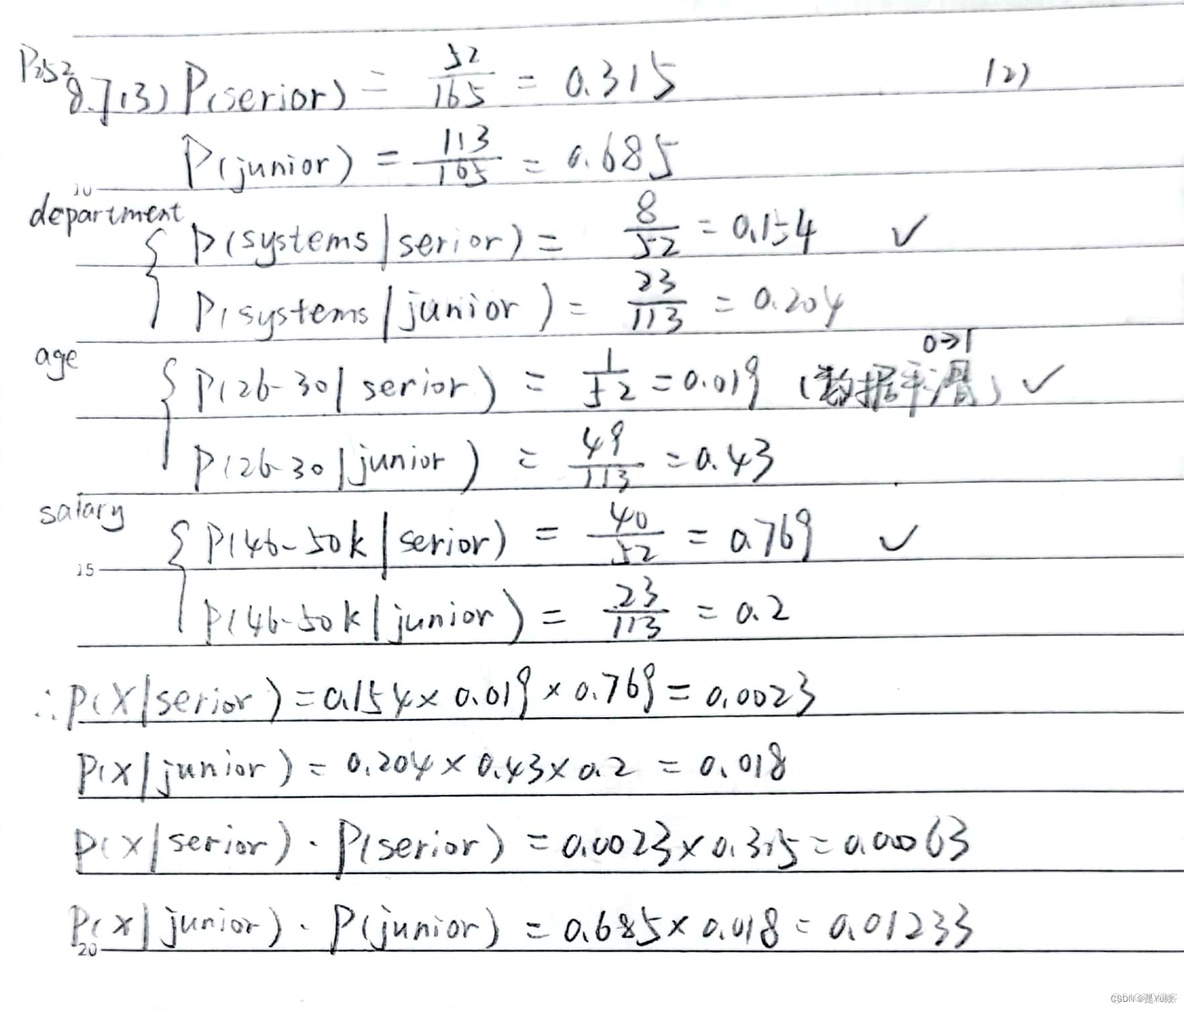 P252
8.7(3) P(serior) = 52/165 = 0.315 (2)
P(junior) = 113/165 = 0.685
10
department
P(systems|serior) = 8/52 = 0.154 ✓
P(systems|junior) = 23/113 = 0.204
age
0→1
P(26-30|serior) = 1/52 = 0.019 (数据平滑) ✓
P(26-30|junior) = 49/113 = 0.43
salary
P(46-50k|serior) = 40/52 = 0.769 ✓
15
P(46-50k|junior) = 23/113 = 0.2
∴P(X|serior) = 0.154×0.019×0.769 = 0.0023
P(X|junior) = 0.204×0.43×0.2 = 0.018
P(X|serior)·P(serior) = 0.0023×0.315 = 0.00063
P(X|junior)·P(junior) = 0.685×0.018 = 0.01233
20